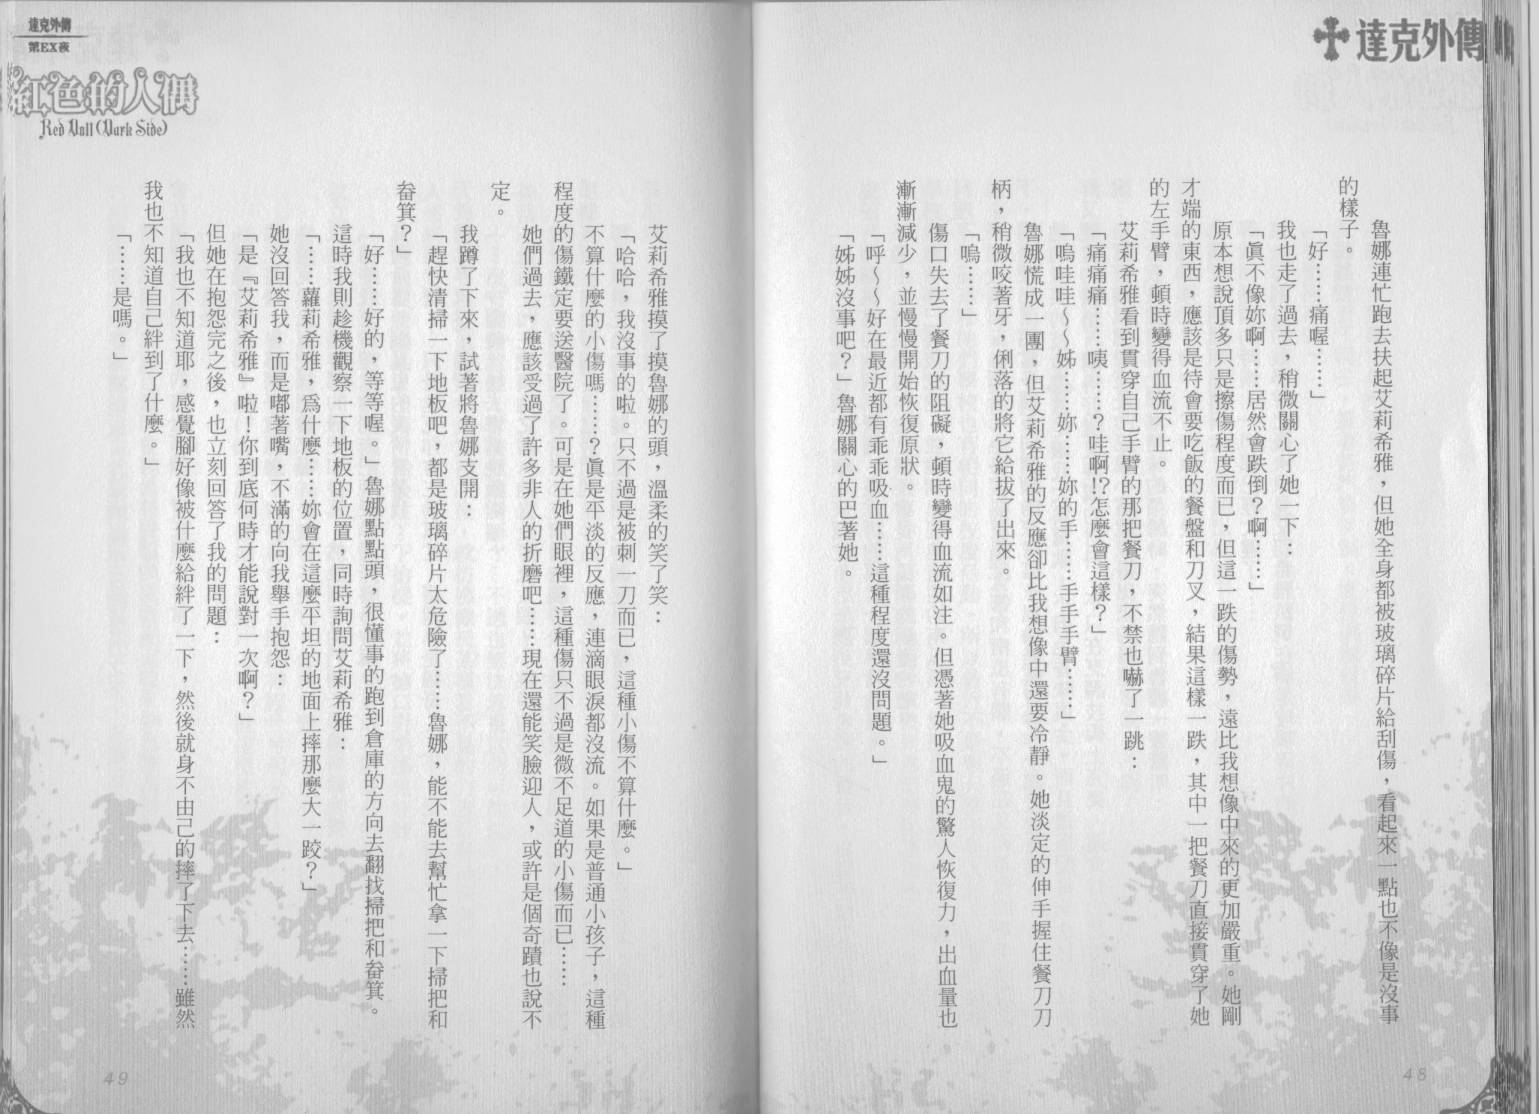 達克外傳
魯娜連忙跑去扶起艾莉希雅，但她全身都被玻璃碎片給刮傷，看起來一點也不像是沒事
的樣子。
「好……痛喔……」
我也走了過去，稍微關心了她一下：
「眞不像妳啊……居然會跌倒？啊……」
原本想說頂多只是擦傷程度而已，但這一跌的傷勢，遠比我想像中來的更加嚴重。她剛
才端的東西，應該是待會要吃飯的餐盤和刀叉，結果這樣一跌，其中一把餐刀直接貫穿了她
的左手臂，頓時變得血流不止。
艾莉希雅看到貫穿自己手臂的那把餐刀，不禁也嚇了一跳：
「痛痛痛……咦……？哇啊!?怎麼會這樣？」
「嗚哇哇～～姊……妳……妳的手……手手手臂……」
魯娜慌成一團，但艾莉希雅的反應卻比我想像中還要冷靜。她淡定的伸手握住餐刀刀
柄，稍微咬著牙，俐落的將它給拔了出來。
「嗚……」
傷口失去了餐刀的阻礙，頓時變得血流如注。但憑著她吸血鬼的驚人恢復力，出血量也
漸漸減少，並慢慢開始恢復原狀。
「呼～～好在最近都有乖乖吸血……這種程度還沒問題。」
「姊姊沒事吧？」魯娜關心的巴著她。
48
達克外傳
第EX夜
紅色的人偶
Red Doll (Dark Side)
艾莉希雅摸了摸魯娜的頭，溫柔的笑了笑：
「哈哈，我沒事的啦。只不過是被刺一刀而已，這種小傷不算什麼。」
不算什麼的小傷嗎……？眞是平淡的反應，連滴眼淚都沒流。如果是普通小孩子，這種
程度的傷鐵定要送醫院了。可是在她們眼裡，這種傷只不過是微不足道的小傷而已……
她們過去，應該受過了許多非人的折磨吧……現在還能笑臉迎人，或許是個奇蹟也說不
定。
我蹲了下來，試著將魯娜支開：
「趕快清掃一下地板吧，都是玻璃碎片太危險了……魯娜，能不能去幫忙拿一下掃把和
畚箕？」
「好……好的，等等喔。」魯娜點點頭，很懂事的跑到倉庫的方向去翻找掃把和畚箕。
這時我則趁機觀察一下地板的位置，同時詢問艾莉希雅：
「……蘿莉希雅，爲什麼……妳會在這麼平坦的地面上摔那麼大一跤？」
她沒回答我，而是嘟著嘴，不滿的向我舉手抱怨：
「是『艾莉希雅』啦！你到底何時才能說對一次啊？」
但她在抱怨完之後，也立刻回答了我的問題：
「我也不知道耶，感覺腳好像被什麼給絆了一下，然後就身不由己的摔了下去……雖然
我也不知道自己絆到了什麼。」
「……是嗎。」
49